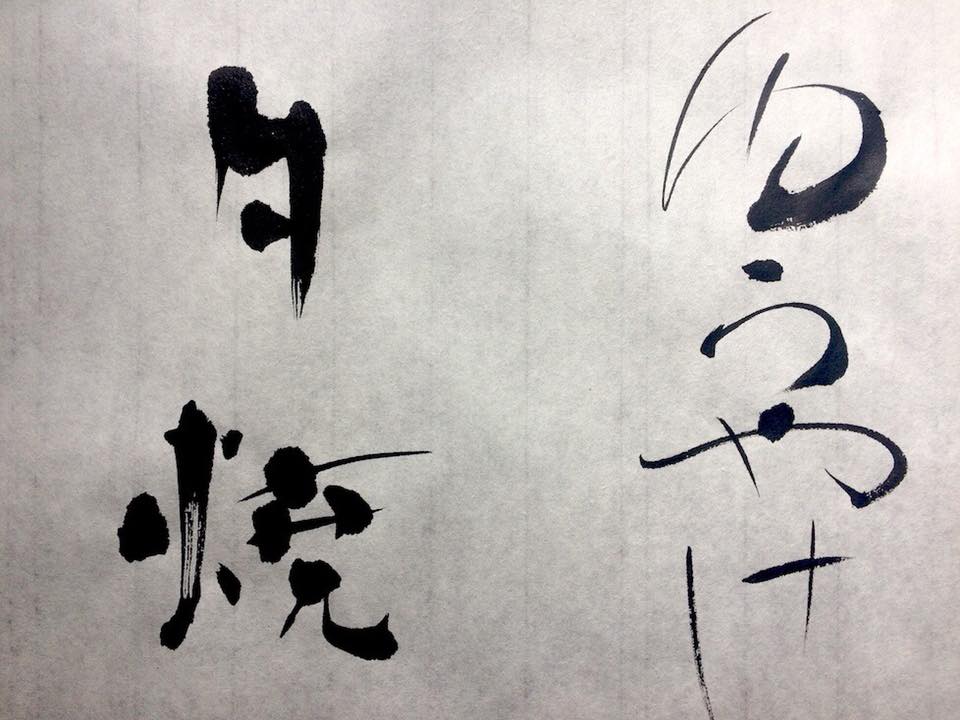 ゆうやけ
夕焼